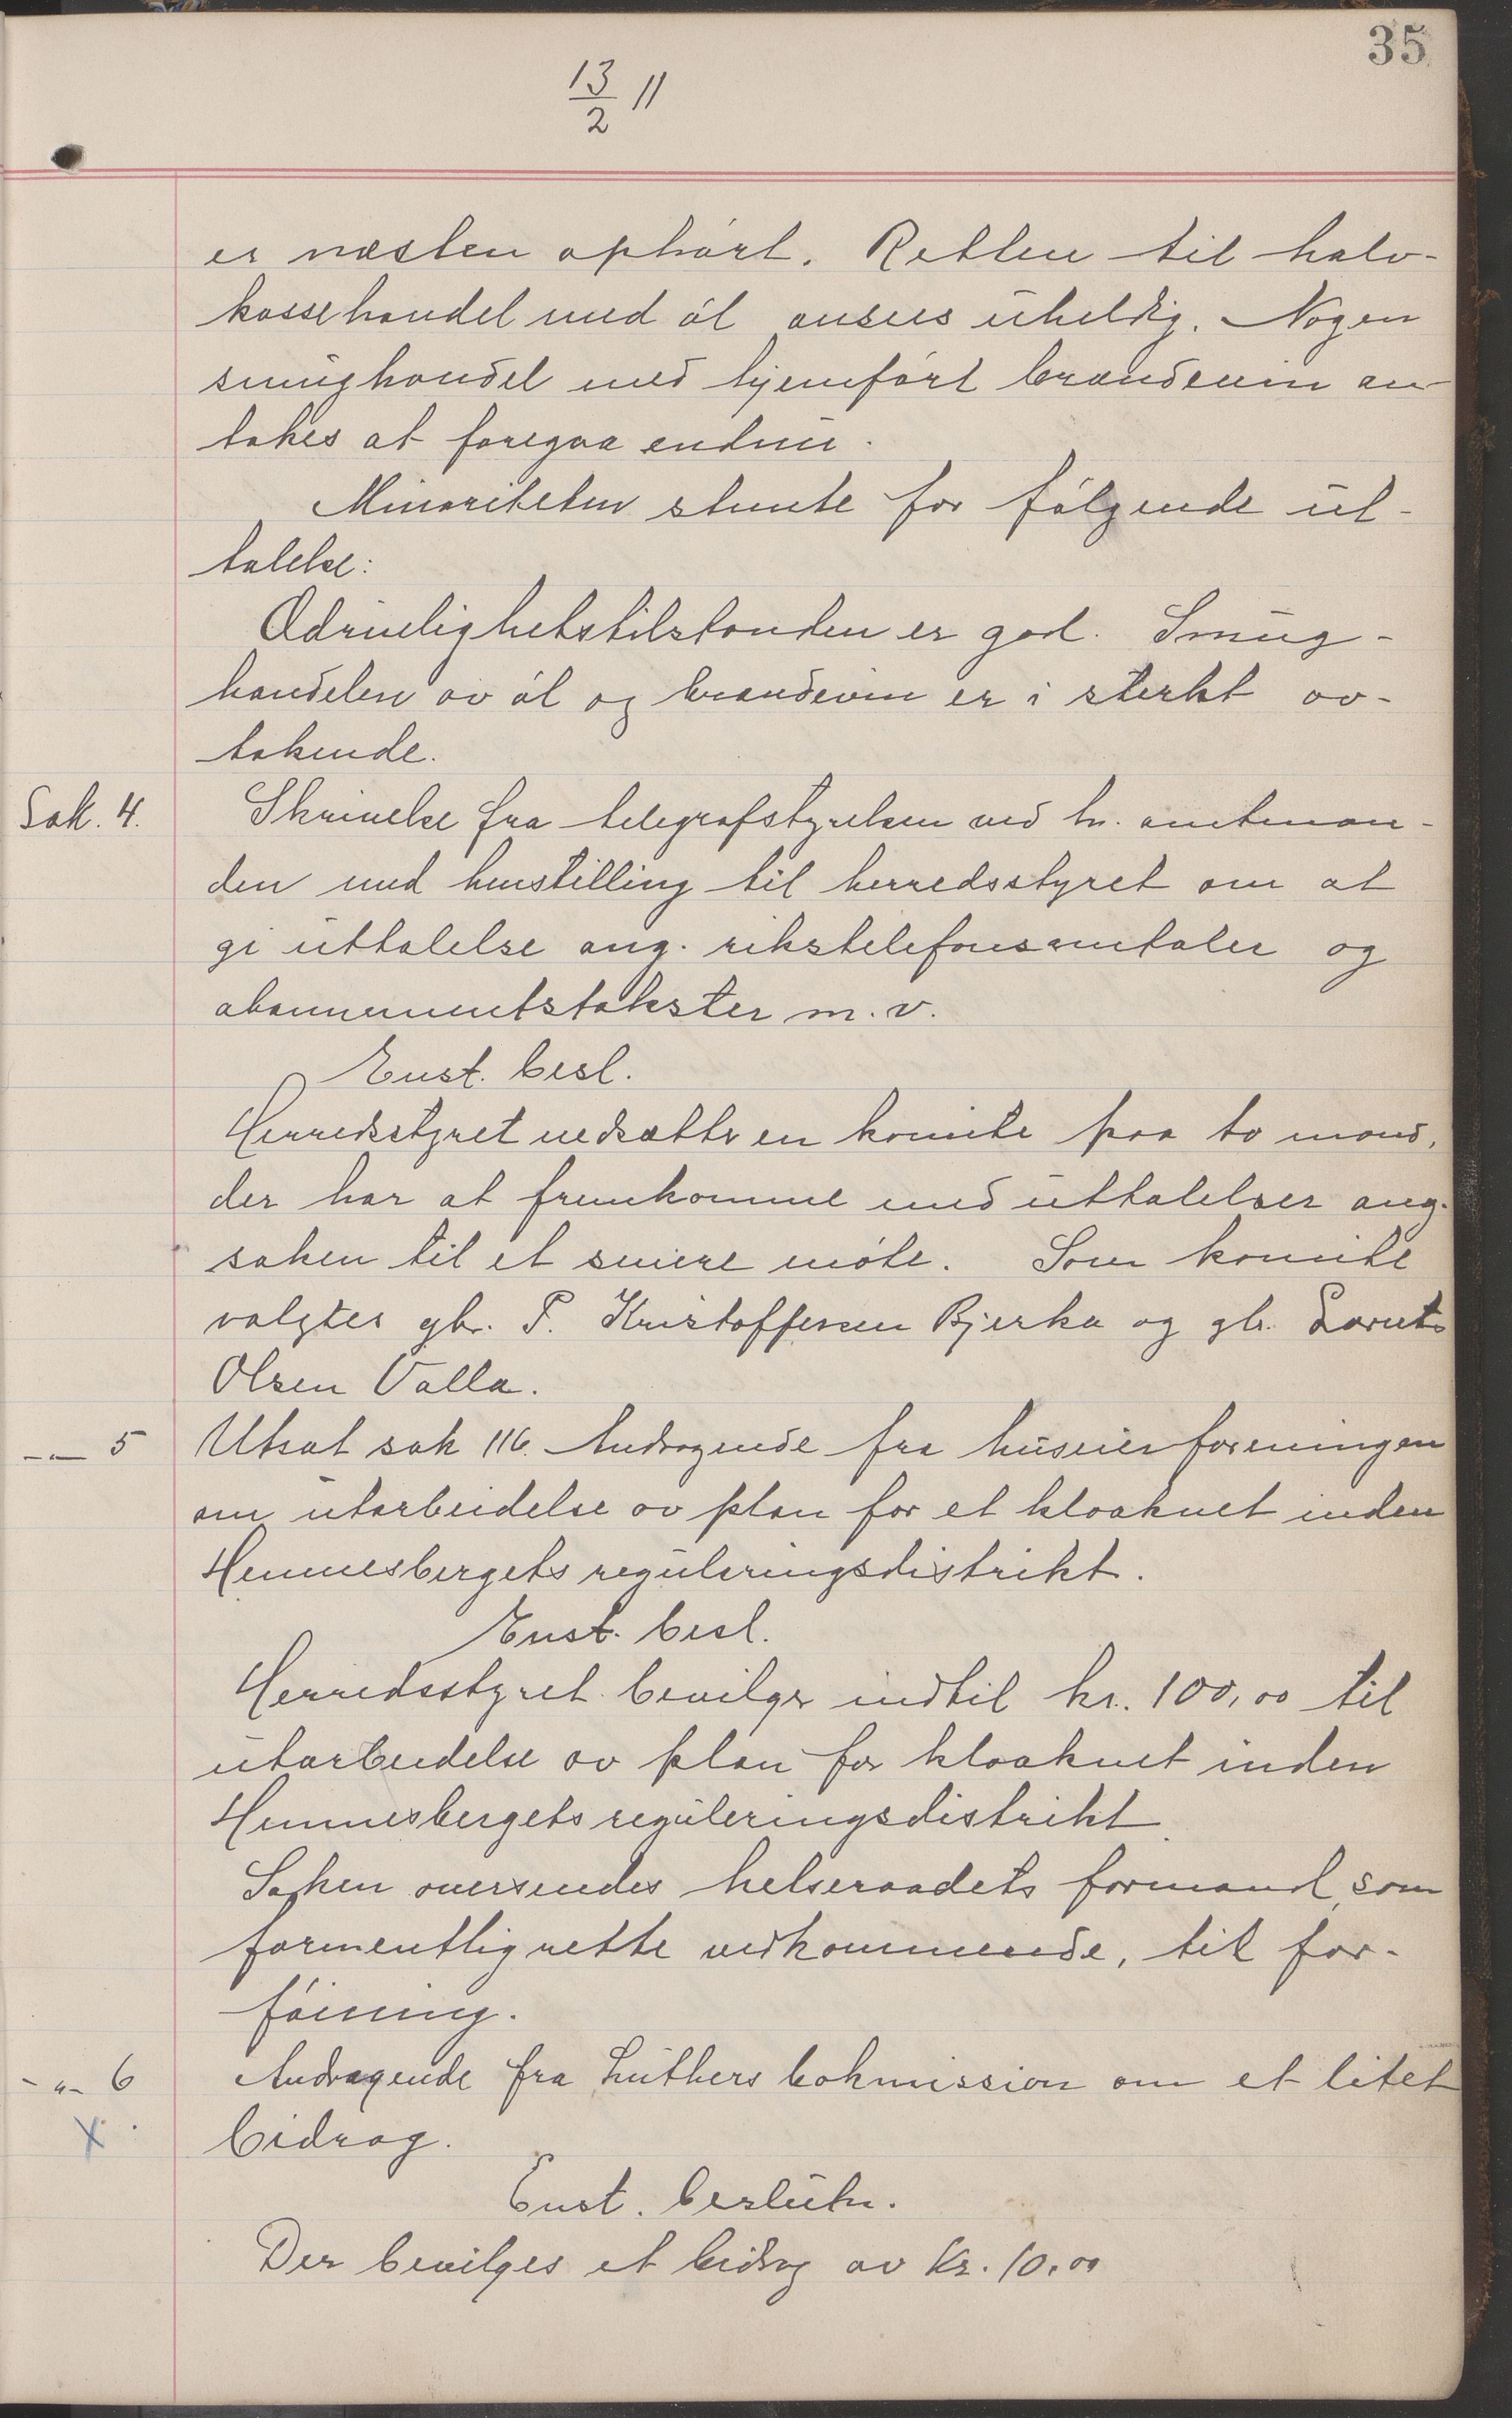 35
13/2 11
er næsten ophørt. Retten til halv-
kassehandel med øl ansees uheldig. Nogen
smughandel med hjemført brændevin an-
takes at foregaa endnu.
Minoriteten stemte for følgende ut-
talelse:
Ædruelighetstilstanden er god. Smug-
handelen av øl og brændevin er i sterkt av-
takende.
Sak. 4. Skrivelse fra telegrafstyrelsen ved hr. amtman-
den med henstilling til herredsstyret om at
gi uttalelse ang. rikstelefonsamtaler og
abonnementstakster m.v.
Enst. besl.
Herredsstyret nedsætter en komite paa to mand,
der har at fremkomme med uttalelser ang.
saken til et senere møte. Som komite
valgtes gbr. P. Kristoffersen Bjerka og gbr. Lorents
Olsen Valla.
-"- 5 Utsat sak 116. Andragende fra huseierforeningen
om utarbeidelse av plan for et kloaknet inden
Hemnesbergets reguleringsdistrikt.
Enst. besl.
Herredsstyret bevilger indtil kr. 100,00 til
utarbeidelse av plan for kloaknet inden
Hemnesbergets reguleringsdistrikt.
Saken oversendes helseraadets formand, som
formentlig rette vedkommende, til for-
føining.
-"- 6 Andragende fra Luthers bokmission om et litet
X bidrag.
Enst. beslutn.
Der bevilges et bidrag av Kr. 10.00